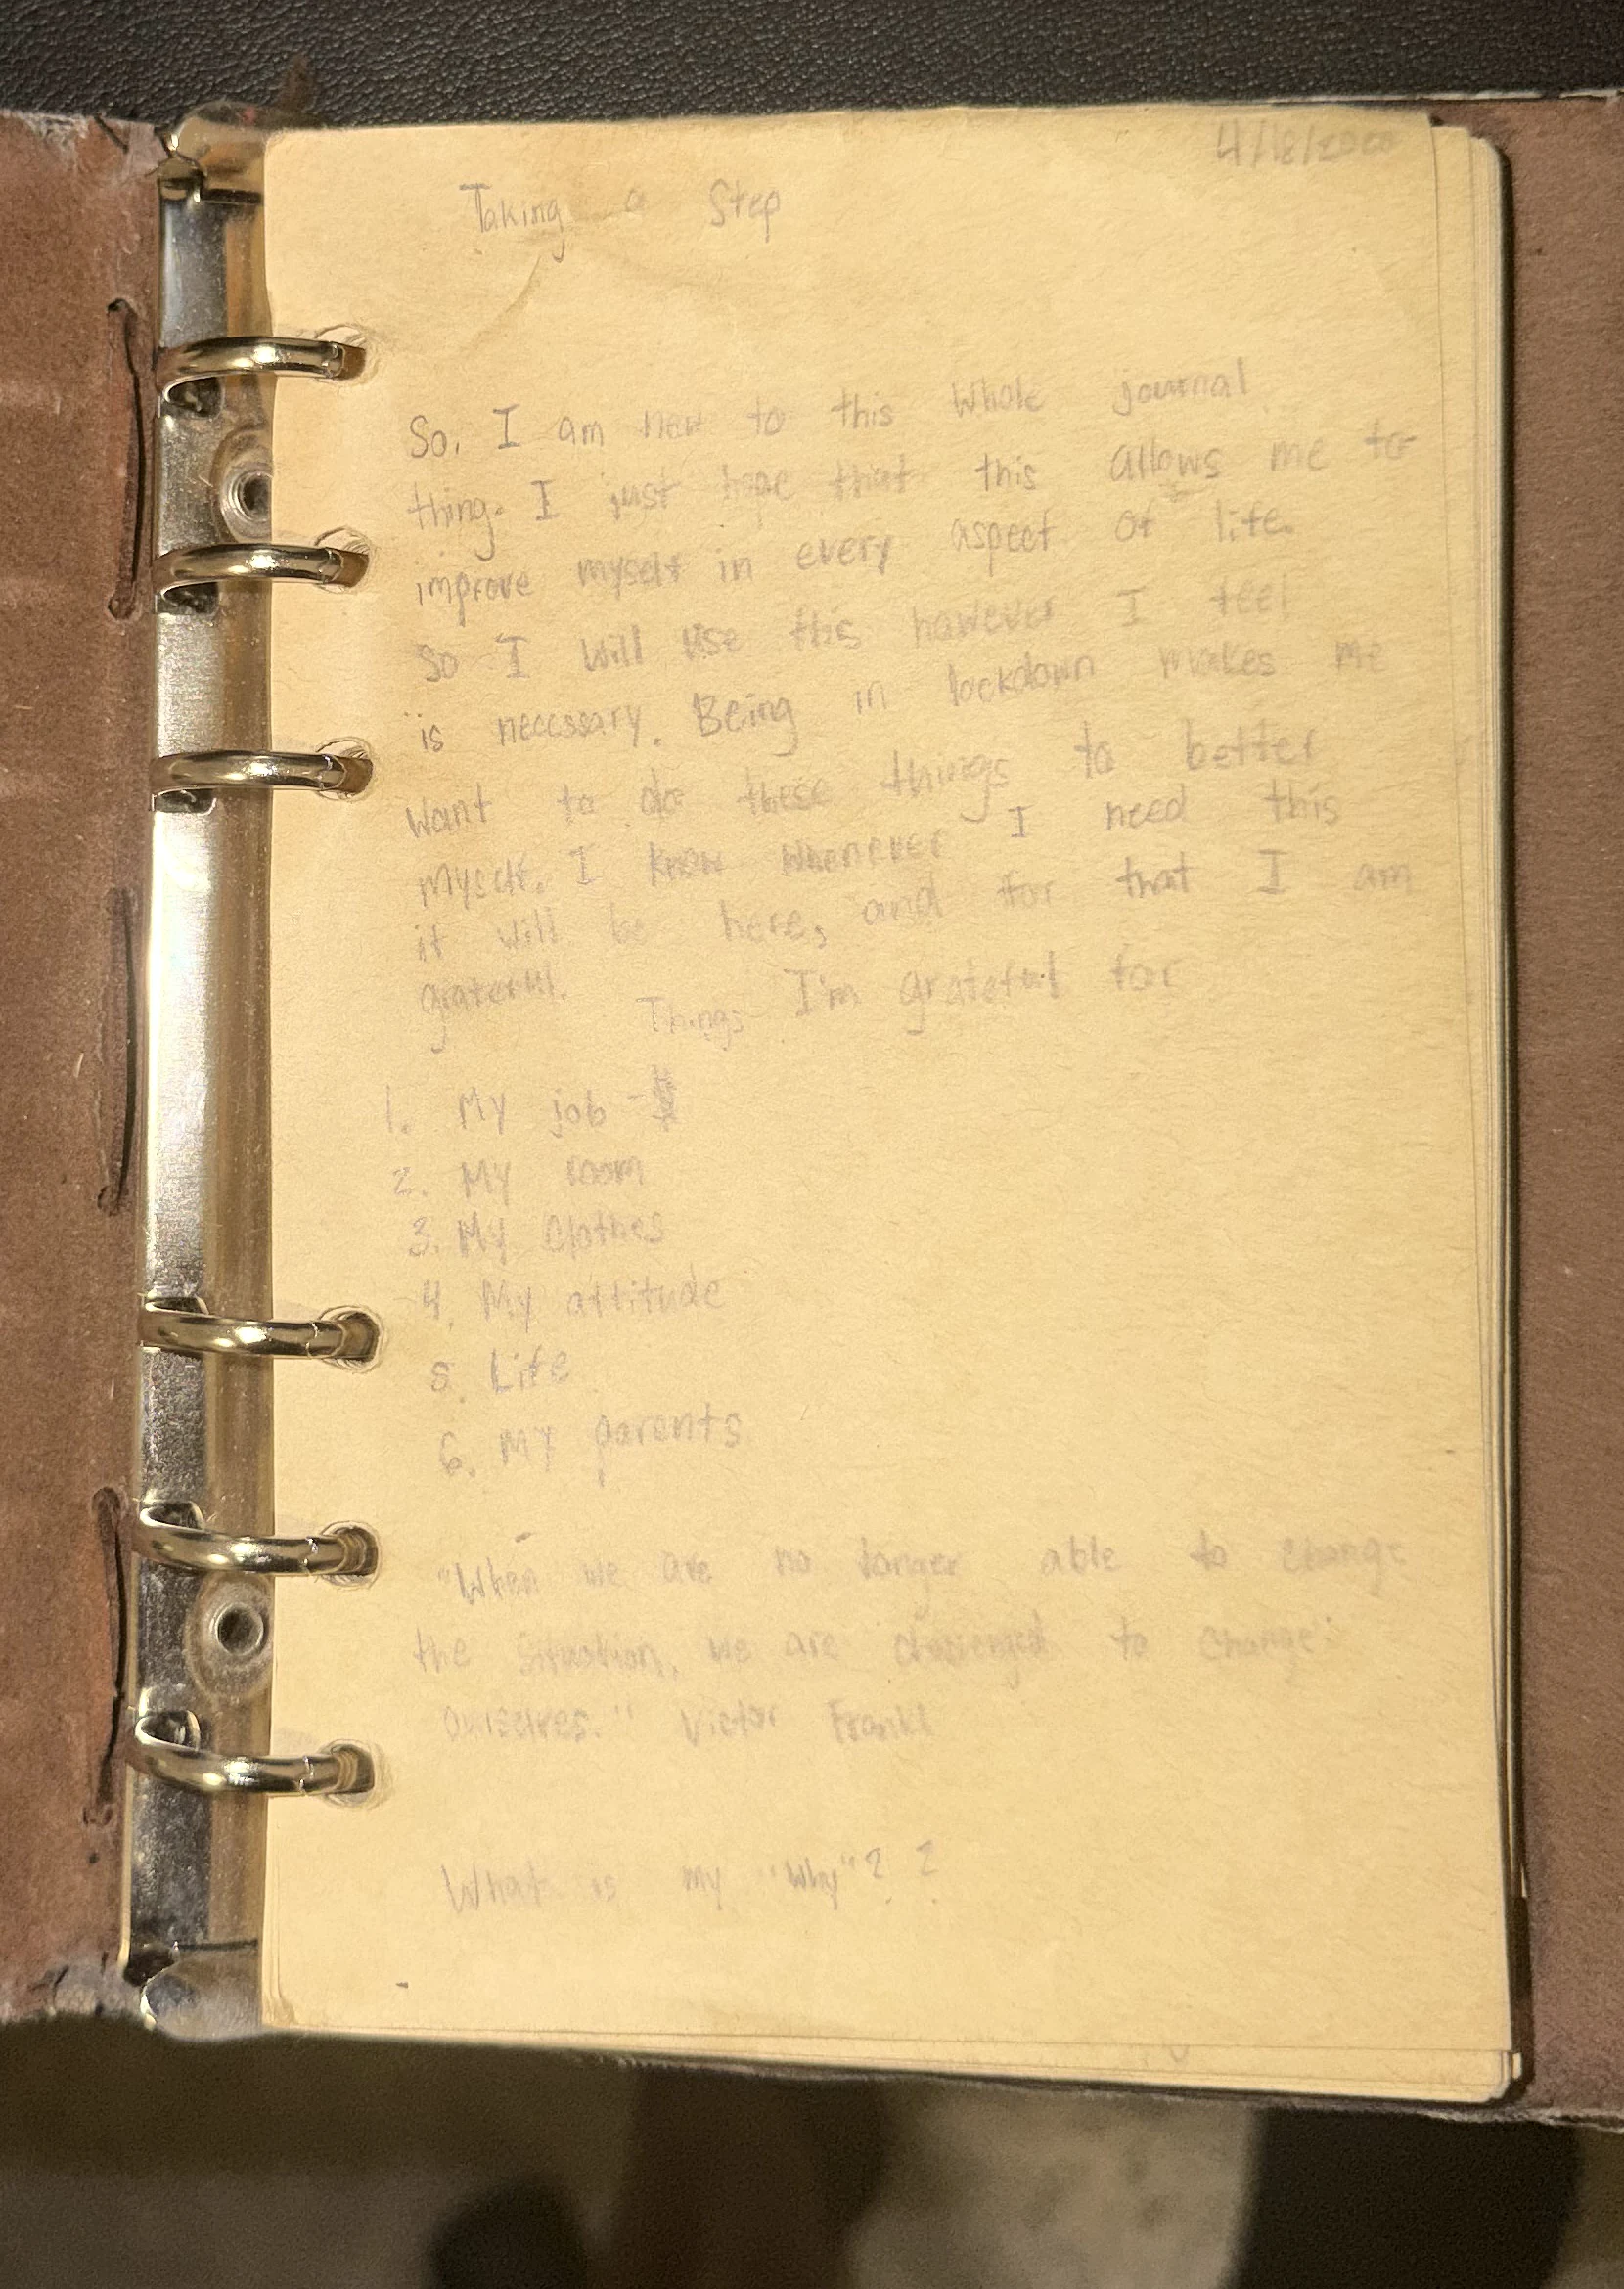 4/18/2020
Taking a Step
So, I am new to this whole journal
thing. I just hope that this allows me to
improve myself in every aspect of life.
So I will use this however I feel
is necessary. Being in lockdown makes me
want to do these things to better
myself. I know whenever I need this
it will be here, and for that I am
grateful.
Things I'm grateful for
1. My job - $
2. My room
3. My clothes
4. My attitude
5. Life
6. My parents
"When we are no longer able to change
the situation, we are to change
ourselves." Victor Frankl
What is my "Why"? ?